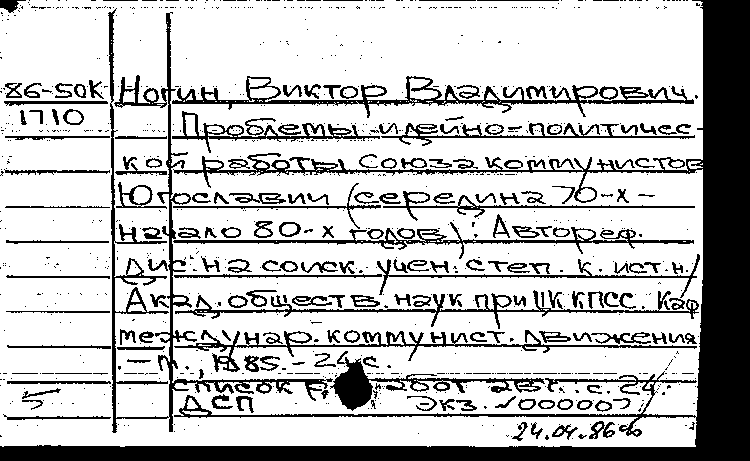 86-50К Ногин, Виктор Владимирович.
1710 Проблемы идейно-политичес-
кой работы Союза коммунистов
Югославии (середина 70-х -
начало 80-х годов): Автореф.
дис. на соиск. учен. степ. к. ист. н/
Акад. обществ. наук при ЦК КПСС. Каф
междунар. коммунист. движения
. - М., 1985. - 24 с.
список работ авт. с. 24.
ДСП экз. №000007
24.04.86